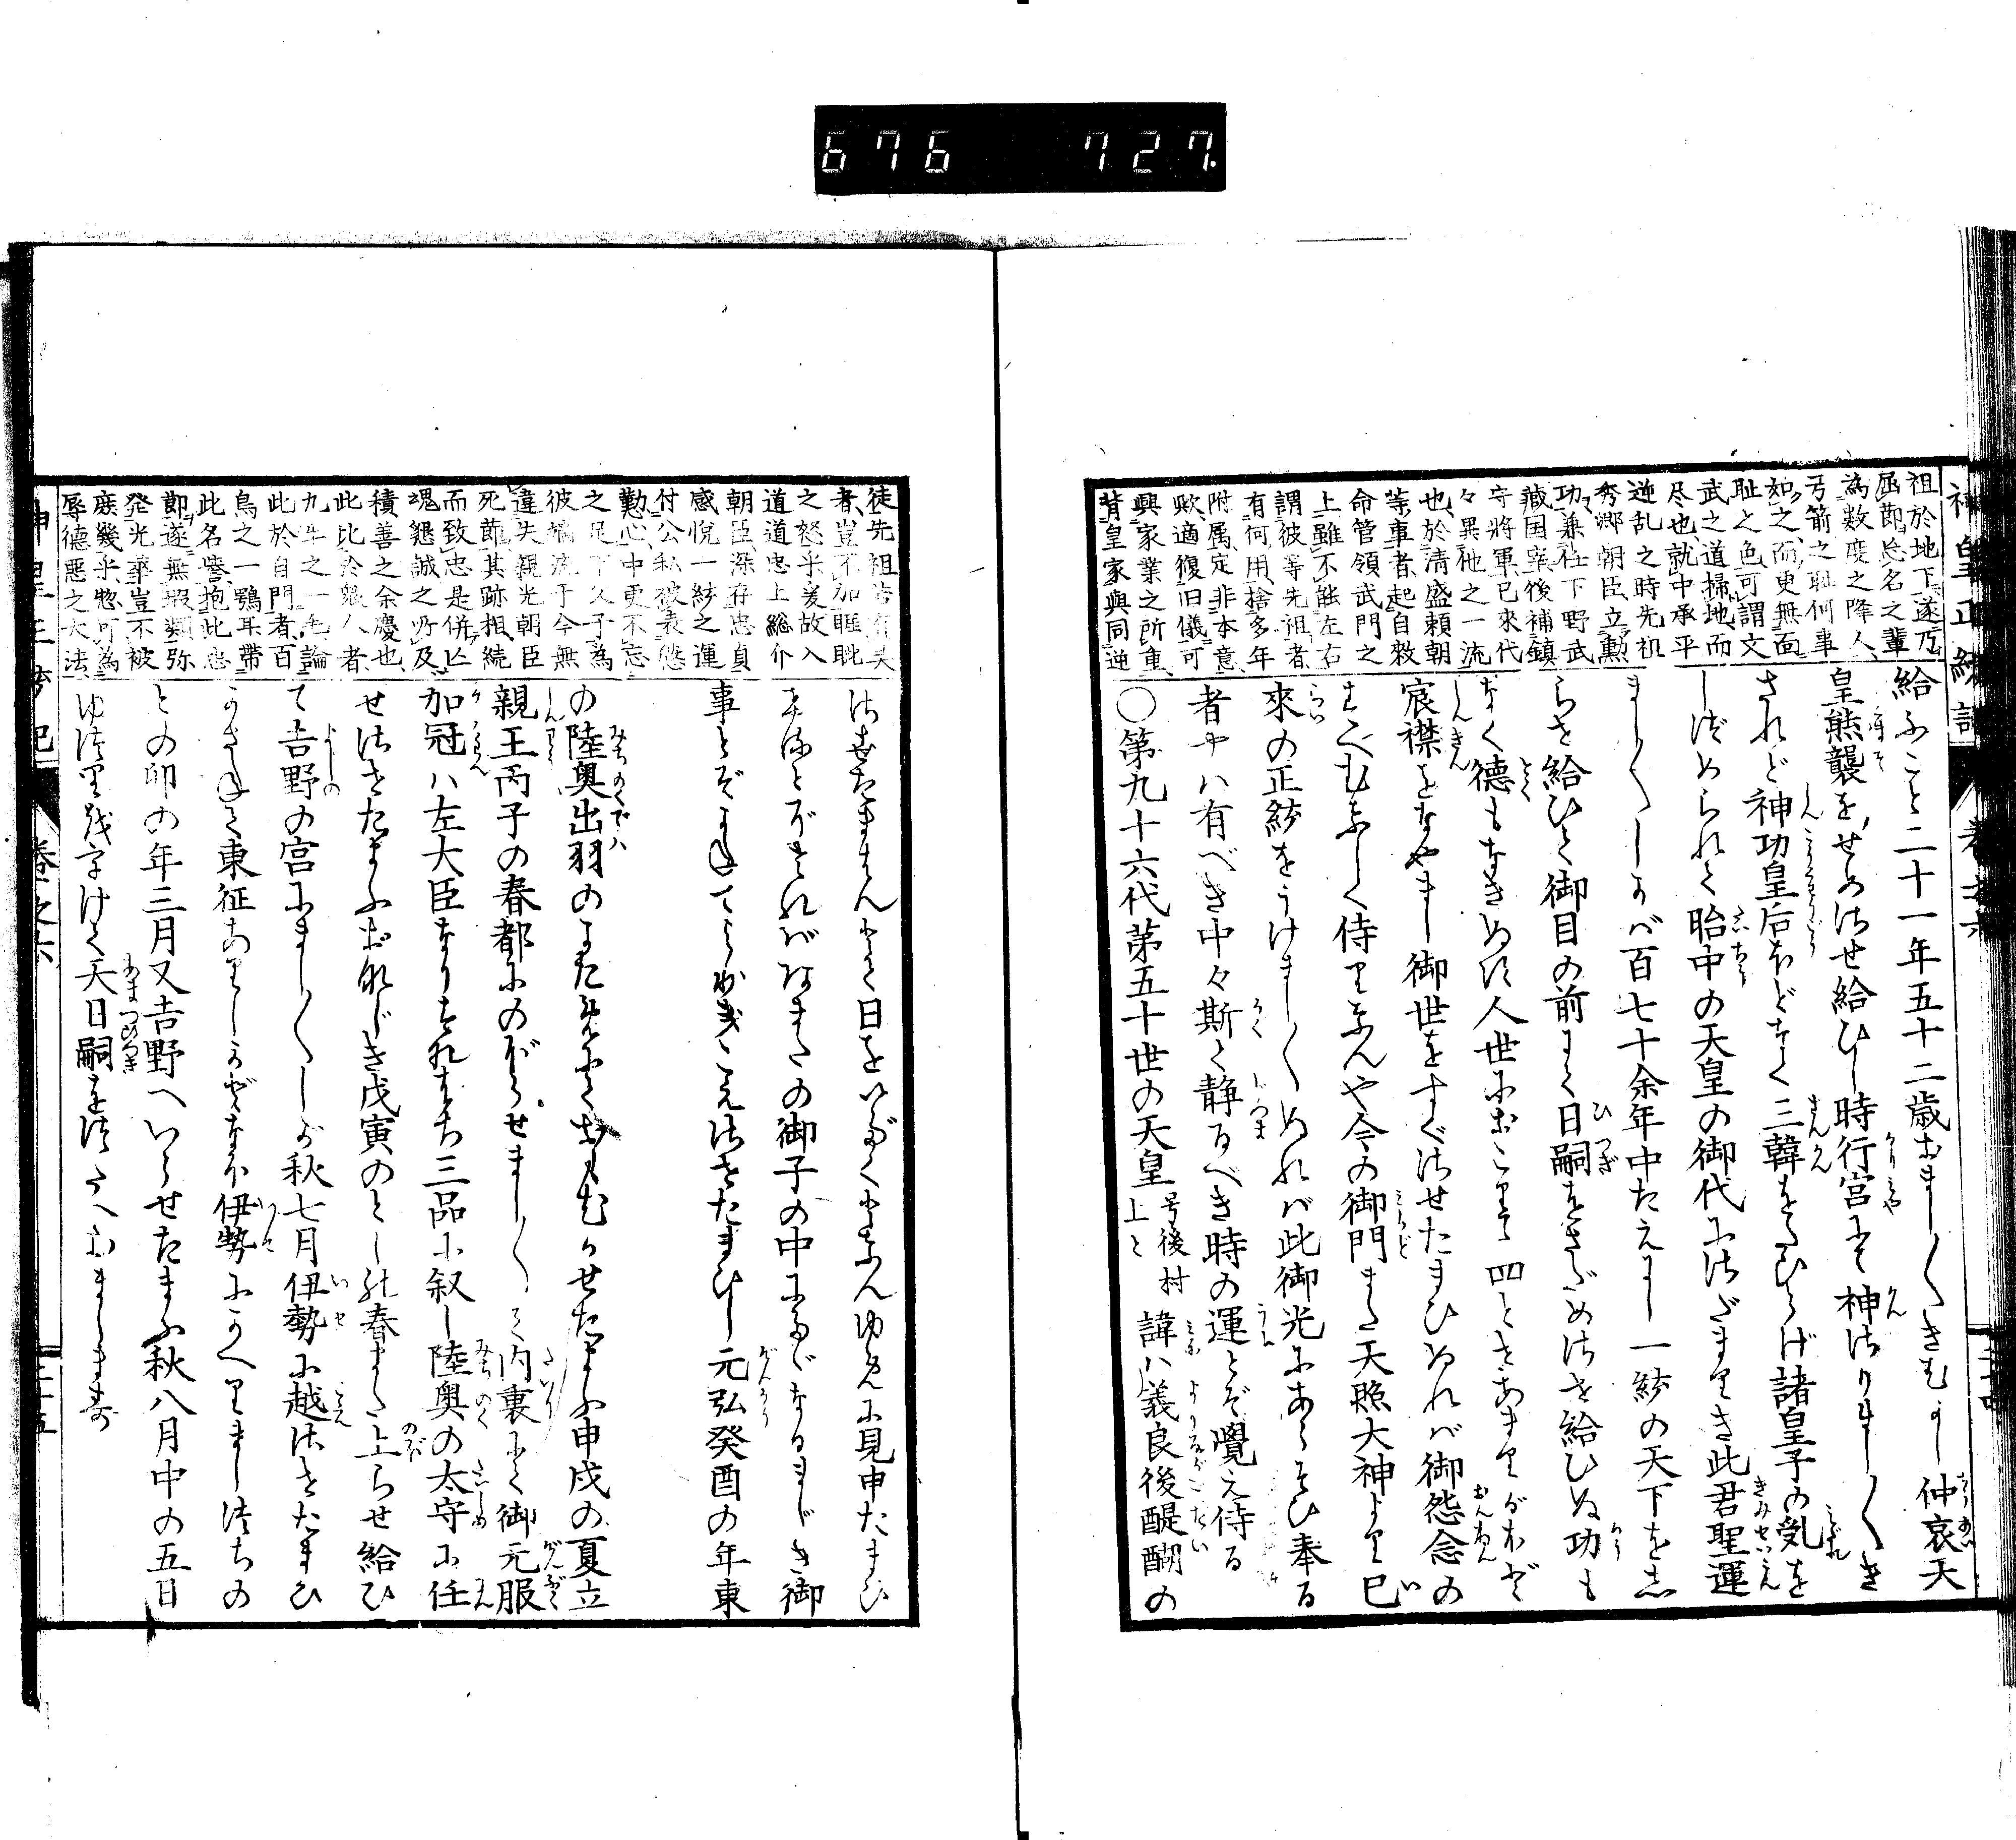 676 727
神皇正統記
巻之六
祖於地下遂乃
屈節怠名之輩
為数度之降人
弓箭之耻何事
如之而更無面
耻之色可謂文
武之道掃地而
尽也就中承平
逆乱之時先祖
秀郷朝臣立勲
功兼社下野武
蔵国宰後補鎮
守将軍已来代
々異他之一流
也於清盛頼朝
等事者起自敕
命管領武門之
上雖不能左右
謂彼等先祖者
有何用捨多年
附属定非本意
歟適復旧儀可
興家業之所重
背皇家與同逆
給ふこと二十一年五十二歳おまし〳〵きむかし仲哀天
皇熊襲をせめさせ給ひし時行宮にて神さりまし〳〵き
されど神功皇后ほどなく三韓をたひらげ諸皇子の乱を
しづめられて胎中の天皇の御代にさだまりき此君聖運
まし〳〵しかバ百七十余年中たえにし一統の天下をし
らせ給ひて御目の前にて日嗣をさだめさせ給ひぬ功も
なく徳もなきぬす人世におこりて四とせあまりがほど
宸襟をなやまし御世をすぐさせたまひぬれバ御怨念の
すゑむなしく侍りなんや今の御門また天照大神より已
來の正統をうけまし〳〵ぬれバ此御光にあらそひ奉る
者やハ有べき中々斯て静るべき時の運とぞ覺え侍る
〇第九十六代第五十世の天皇号後村上と諱ハ義良後醍醐の
徒先祖
者豈不加睚眦
之怒乎爰故入
道道忠上総介
朝臣深存忠貞
感悦一統之運
付公私被表慇
懃心中更不忘
之足下父子為
彼嫡流于今無
違失親光朝臣
死節其跡相続
而致忠是併亡
魂懇誠之所及
積善之余慶也
此比於親人者
九牛之一毛論
此於自門者百
鳥之一鶚耳帯
此名誉抱此忠
節遂無瑕類弥
発光華豈不被
庶幾乎惣可為
辱徳悪之大法
させたまはんとて日をいだくとなんゆめに見申たまひ
けるとぞされバあまたの御子の中にたゞなるまじき御
事とぞかねてよりきこえさせたまひし元弘癸酉の年東
の陸奥出羽のかためにておもむかせたまふ申戌の夏立
親王丙子の春都にのぼらせまし〳〵て内裏にて御元服
加冠ハ左大臣なりすなハち三品に叙し陸奥の太守に任
せさせたまふおなじき戊寅のとし春また上らせ給ひ
て吉野の宮にまし〳〵しが秋七月伊勢に越させたまひ
かさねて東征ありしかどなほ伊勢にかへりましさうちの
との卯の年三月又吉野へいらせたまふ秋八月中の五日
ゆづりをうけて天日嗣をつたへおまします
神皇正統記
巻之六
三十五